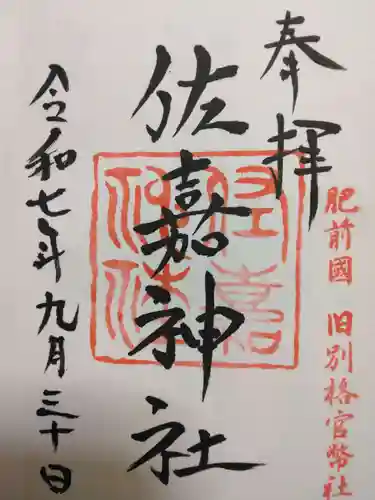 奉拝
肥前國 旧別格官幣社
佐嘉神社
令和七年九月三十日